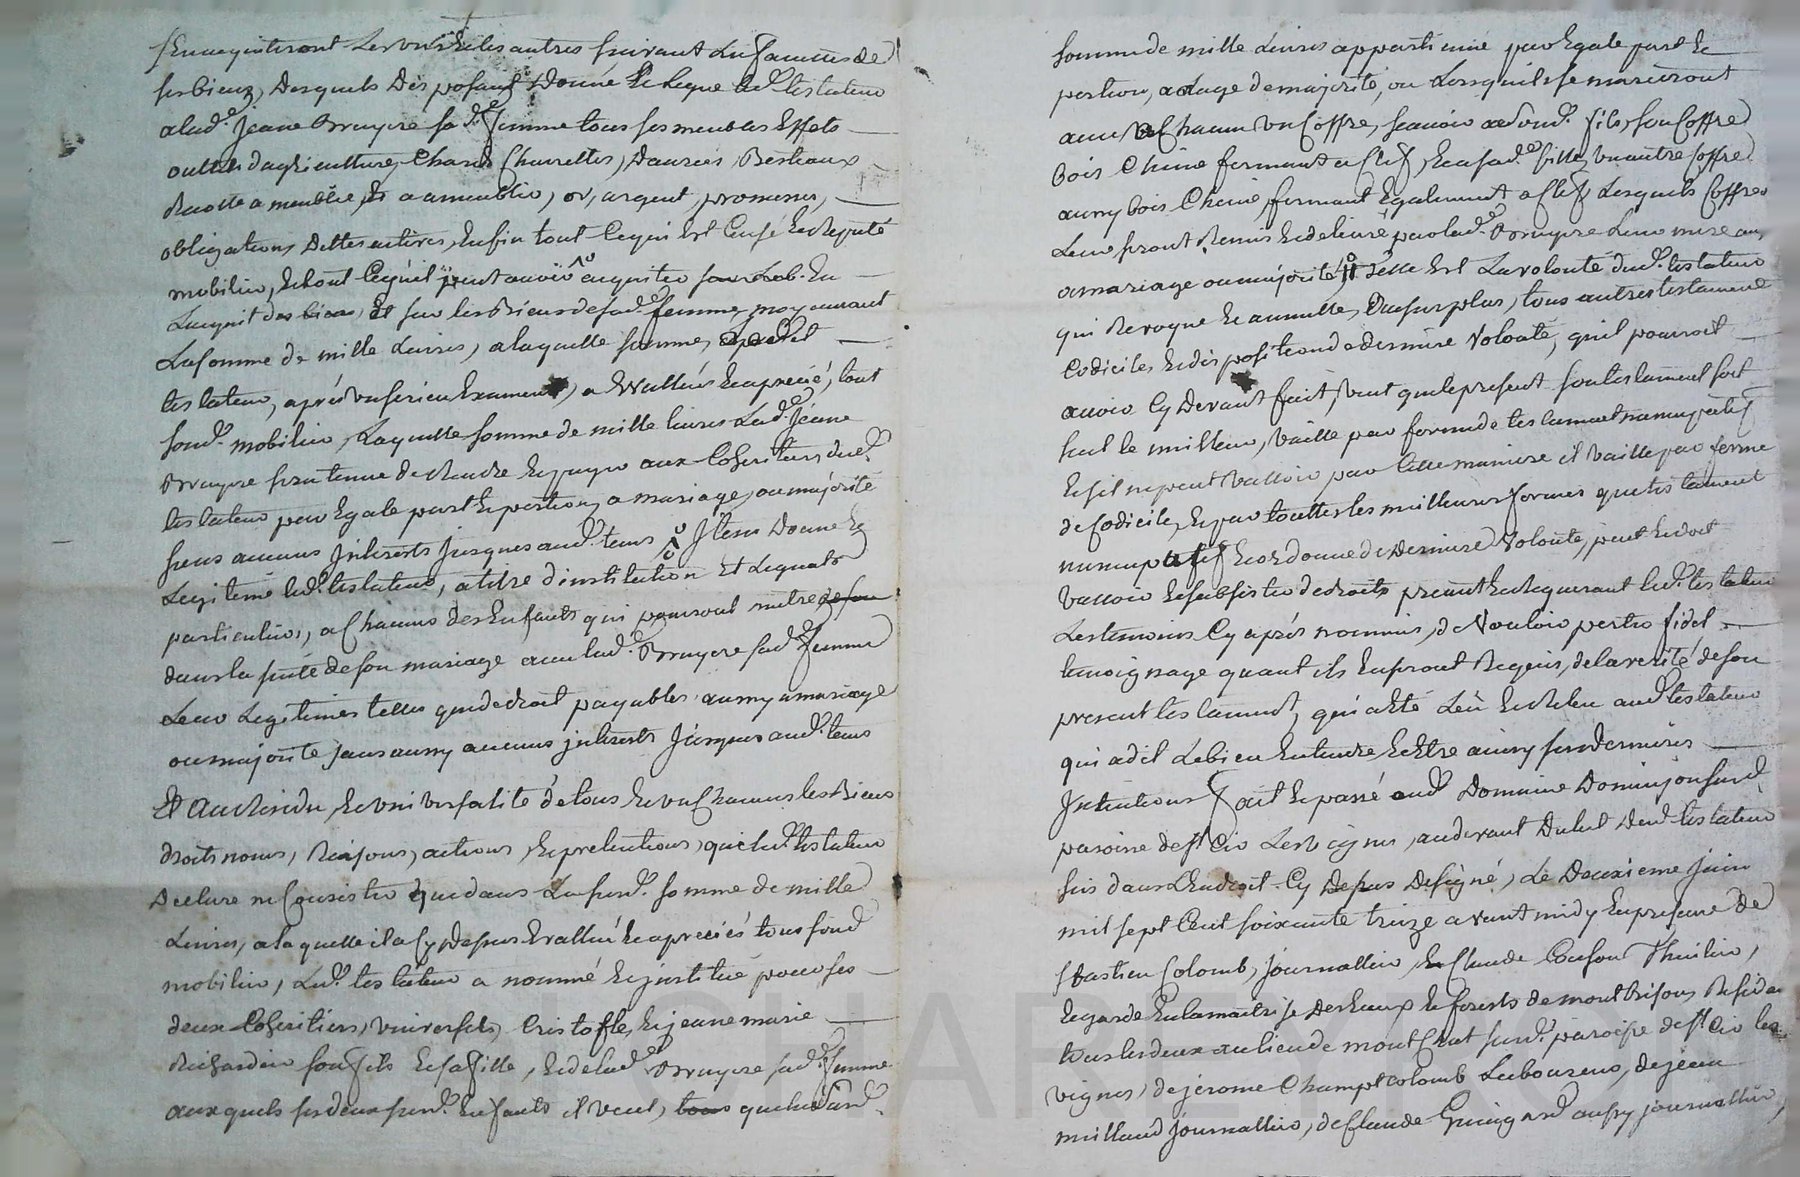 les uns et les autres suivant les facultés de
ses biens, desquels disposant donne et legue led. testateur
a lad. Jeane Bruyere sad. femme tous ses meubles effets
outils dagriculture, Chards Charrettes, Danrées Bestiaux
Recolte a meublée, et a ameublir, or, argent, promesses,
obligations, dettes actives, Enfin tout Ce qui Est Censé Et Reputé
mobilier, Et tout Ce quil peut avoir acquitté
sur les Biens de sad. femme, moyenant
La somme de mille Livres, a laquelle somme, led.
testateur, aprés un serieu Examen, a Evallués Et aprecié, tout
sond. mobilier, Laquelle somme de mille livres Lad. Jeane
Bruyere sera tenue de Rendre Et payer aux Coheritiers dud.
testateur par Egale part Et portion, a mariage, ou majorité
sens aucuns Jnterests Jusques aud. tems Jtem Donne Et
Legiteme led. testateur, a titre d'institution Et Legat
particulier, a Chacuns des Enfants qui pouront naitre de son
dans la suite de son mariage avec lad. Bruyere sad. femme
Leur Legitimes telles que de droit payables aussy a mariage
ou majorité sans aussy aucuns jnterests Jusques aud. tems
Et Au Residu, Et universalité de tous Et un Chacuns les Biens
droits noms, Raisons, actions, Et pretentions, que led. testateur
Declare ne Consister que dans La susd. somme de mille
Livres, a laquelle il a Cy dessus Evallué Et apreciés tous sond.
mobilier, Led. testateur a nommé Et jnstitué pour ses
deux Coheritiers, universels, Cristofle, Et jeane marie
Richardier son fils Et sa fille, Et de lad. Bruyere sad. femme
auxquels ses deux susd. Enfants il veut, tous que lad.
somme de mille Livres appartienne par Egale part Et
portion, a Lage de majorité, ou Lorsquils se marieront
avec a Chacun un Coffre, scavoir a sond. fils, son Coffre
bois Chene fermant a Clef, Et a sad. fille, un autre Coffre
aussy bois Chene, fermant Egalement a Clef Lesquels Coffres
Leur seront Remis Et delivré par lad. Bruyere Leur mere au
a mariage ou majorité telle Est La volonté dud. testateur
qui Revoque Et annulle, Au surplus, tous autres testament
Codiciles Et disposition de derniere Volonté, quil pourroit
avoir Cy Devant fait, veut que le present son testament soit
seul le meilleur, vaille par forme de testament nuncupatif
Et sil ne peut valloir par Cette maniere il vaille par forme
de Codicile, Et par touttes les meilleures formes que testament
nuncupatif Et ordonnance de Derniere Volonté, peut Et doit
valloir Et subsister de droits priant Et Requerant led. testateur
Les temoins Cy aprés nommés, de Vouloir porter fidel
temoignage quant ils En seront Requis, de la verité de son
present testament, qui a Eté Lû Et Relu aud. testateur
qui a dit Le bien Entendre Et Etre ainsy ses dernieres
Jntentions fait Et passé aud. Domaine Dominjon susd.
paroisse de St Cir Les vignes, au devant Du lit Dud. testateur
sis dans Lendroit Cy Dessus Designé, Le Deuxieme juin
mil sept Cent soixante treize avant midy En presence De
sbastien Colomb, journallier, Et Claude
Et garde En la maitrise des Eaux Et forests de montbrison, Residants
tous les deux au lieu de susd. paroisse de St Cir les
vignes, de jerome Champt colomb Laboureur, de jean
milland journallier, de Claude Guingard aussy journallier,